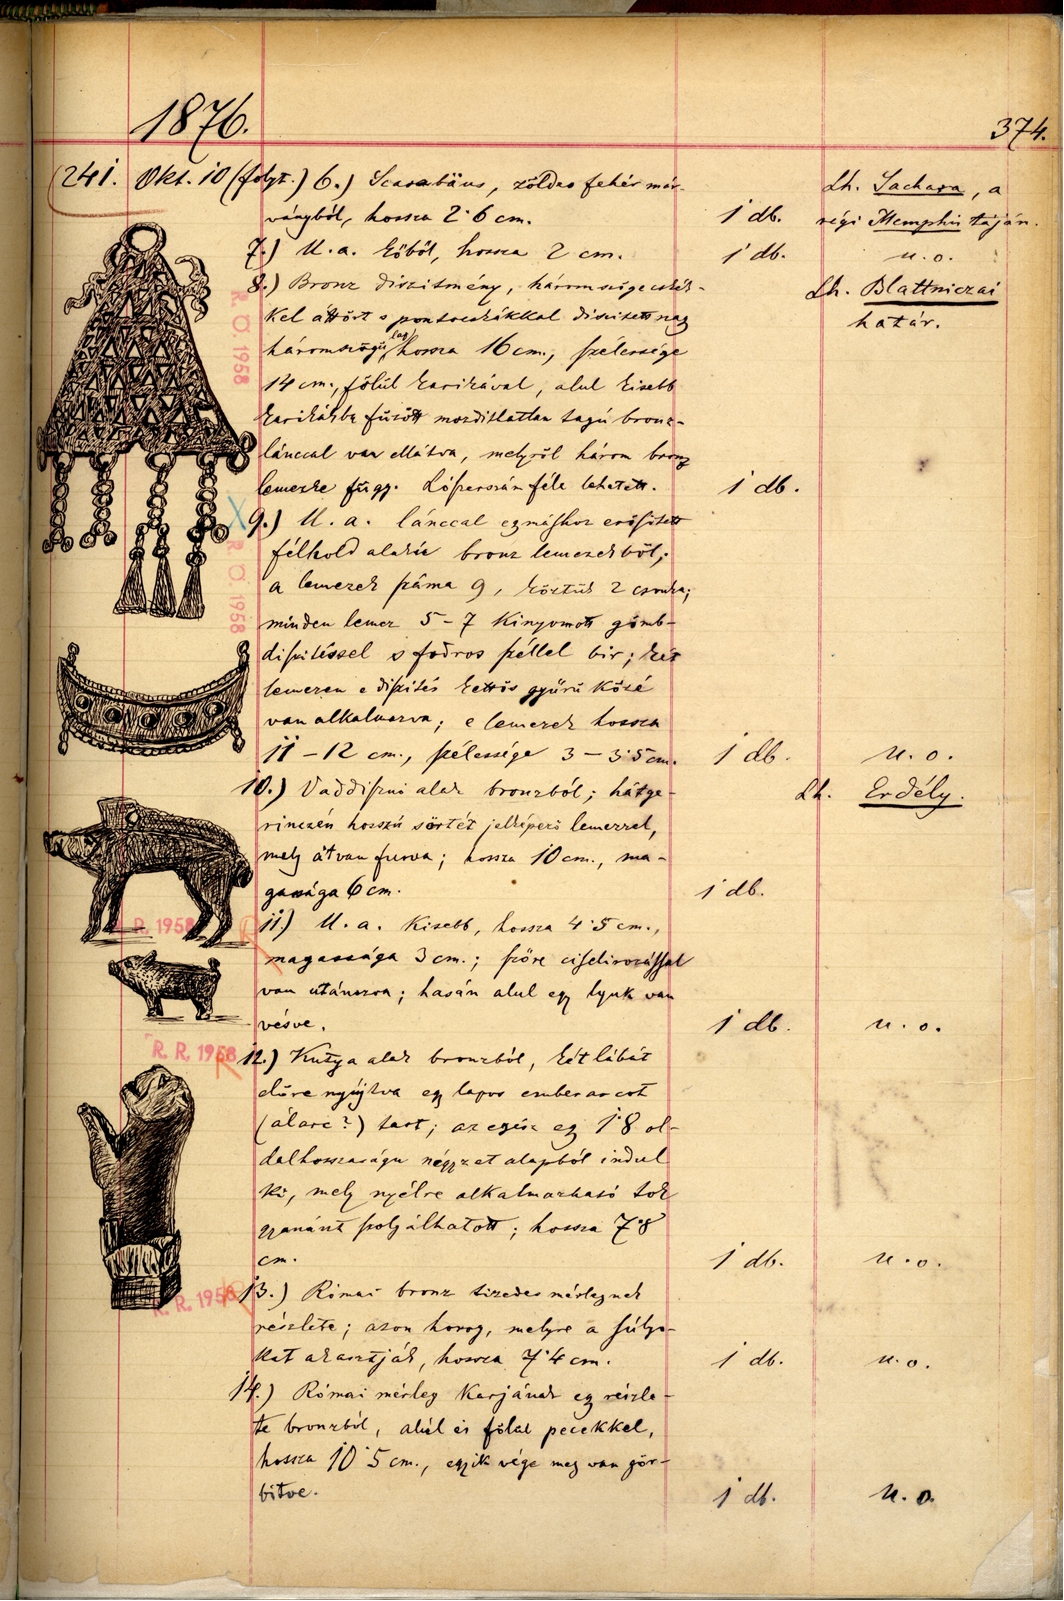 1876.
374.
241. Okt. 10 (folyt.) 6.) Scarabäus, zöldes fehér már-
ványból, hossza 2·6 cm. 1 db. Lh. Sachara, a
régi Memphis táján.
7.) U. a. kőből, hossza 2 cm. 1 db. u. o.
8.) Bronz diszitmény, háromszögecskék-
kel áttört s pontocskákkal diszitett nagy
háromszögű lap, hossza 16 cm., szélessége
14 cm., fölül karikával, alul kisebb
karikákba fűzött mozdithatlan tagú bronz-
lánccal van ellátva, melyről három bronz
lemezke függ. Lószerszám féle lehetett. 1 db. Lh. Blattniczai
határ.
9.) U. a. lánccal egymáshoz erősitett
félhold alakú bronz lemezekből;
a lemezek száma 9, köztük 2 csonka;
minden lemez 5-7 kinyomott gömb-
diszitéssel s fodros széllel bir; két
lemezen e diszités kettős gyűrű közé
van alkalmazva; e lemezek hossza
11-12 cm., szélessége 3-3·5 cm. 1 db. u. o.
10.) Vaddisznó alak bronzból; hátge-
rinczén hosszú sörtét jelképező lemezzel,
mely át van furva; hossza 10 cm., ma-
gassága 6 cm. 1 db. Lh. Erdély.
11.) U. a. kisebb, hossza 4·5 cm.,
magassága 3 cm.; szőre ciselirozással
van utánozva; hasán alul egy lyuk van
vésve. 1 db. u. o.
12.) Kutya alak bronzból, két lábát
előre nyújtva egy lapos emberarcot
(álarc?) tart; az egész egy 1·8 ol-
dalhosszaságu négyzet alapból indul
ki, mely nyélre alkalmazható tok
gyanánt szolgálhatott; hossza 7·8
cm. 1 db. u. o.
13.) Római bronz tizedes mérlegnek
részlete; azon horog, melyre a súlyo-
kat akasztják, hossza 7·4 cm. 1 db. u. o.
14.) Római mérleg karjának egy részle-
te bronzból, alúl és fölül pecekkel,
hossza 10·5 cm., egyik vége meg van gör-
bitve. 1 db. u. o.
R. O. 1958
R. O. 1958
R. 1958
R. R. 1958
R. R. 1958